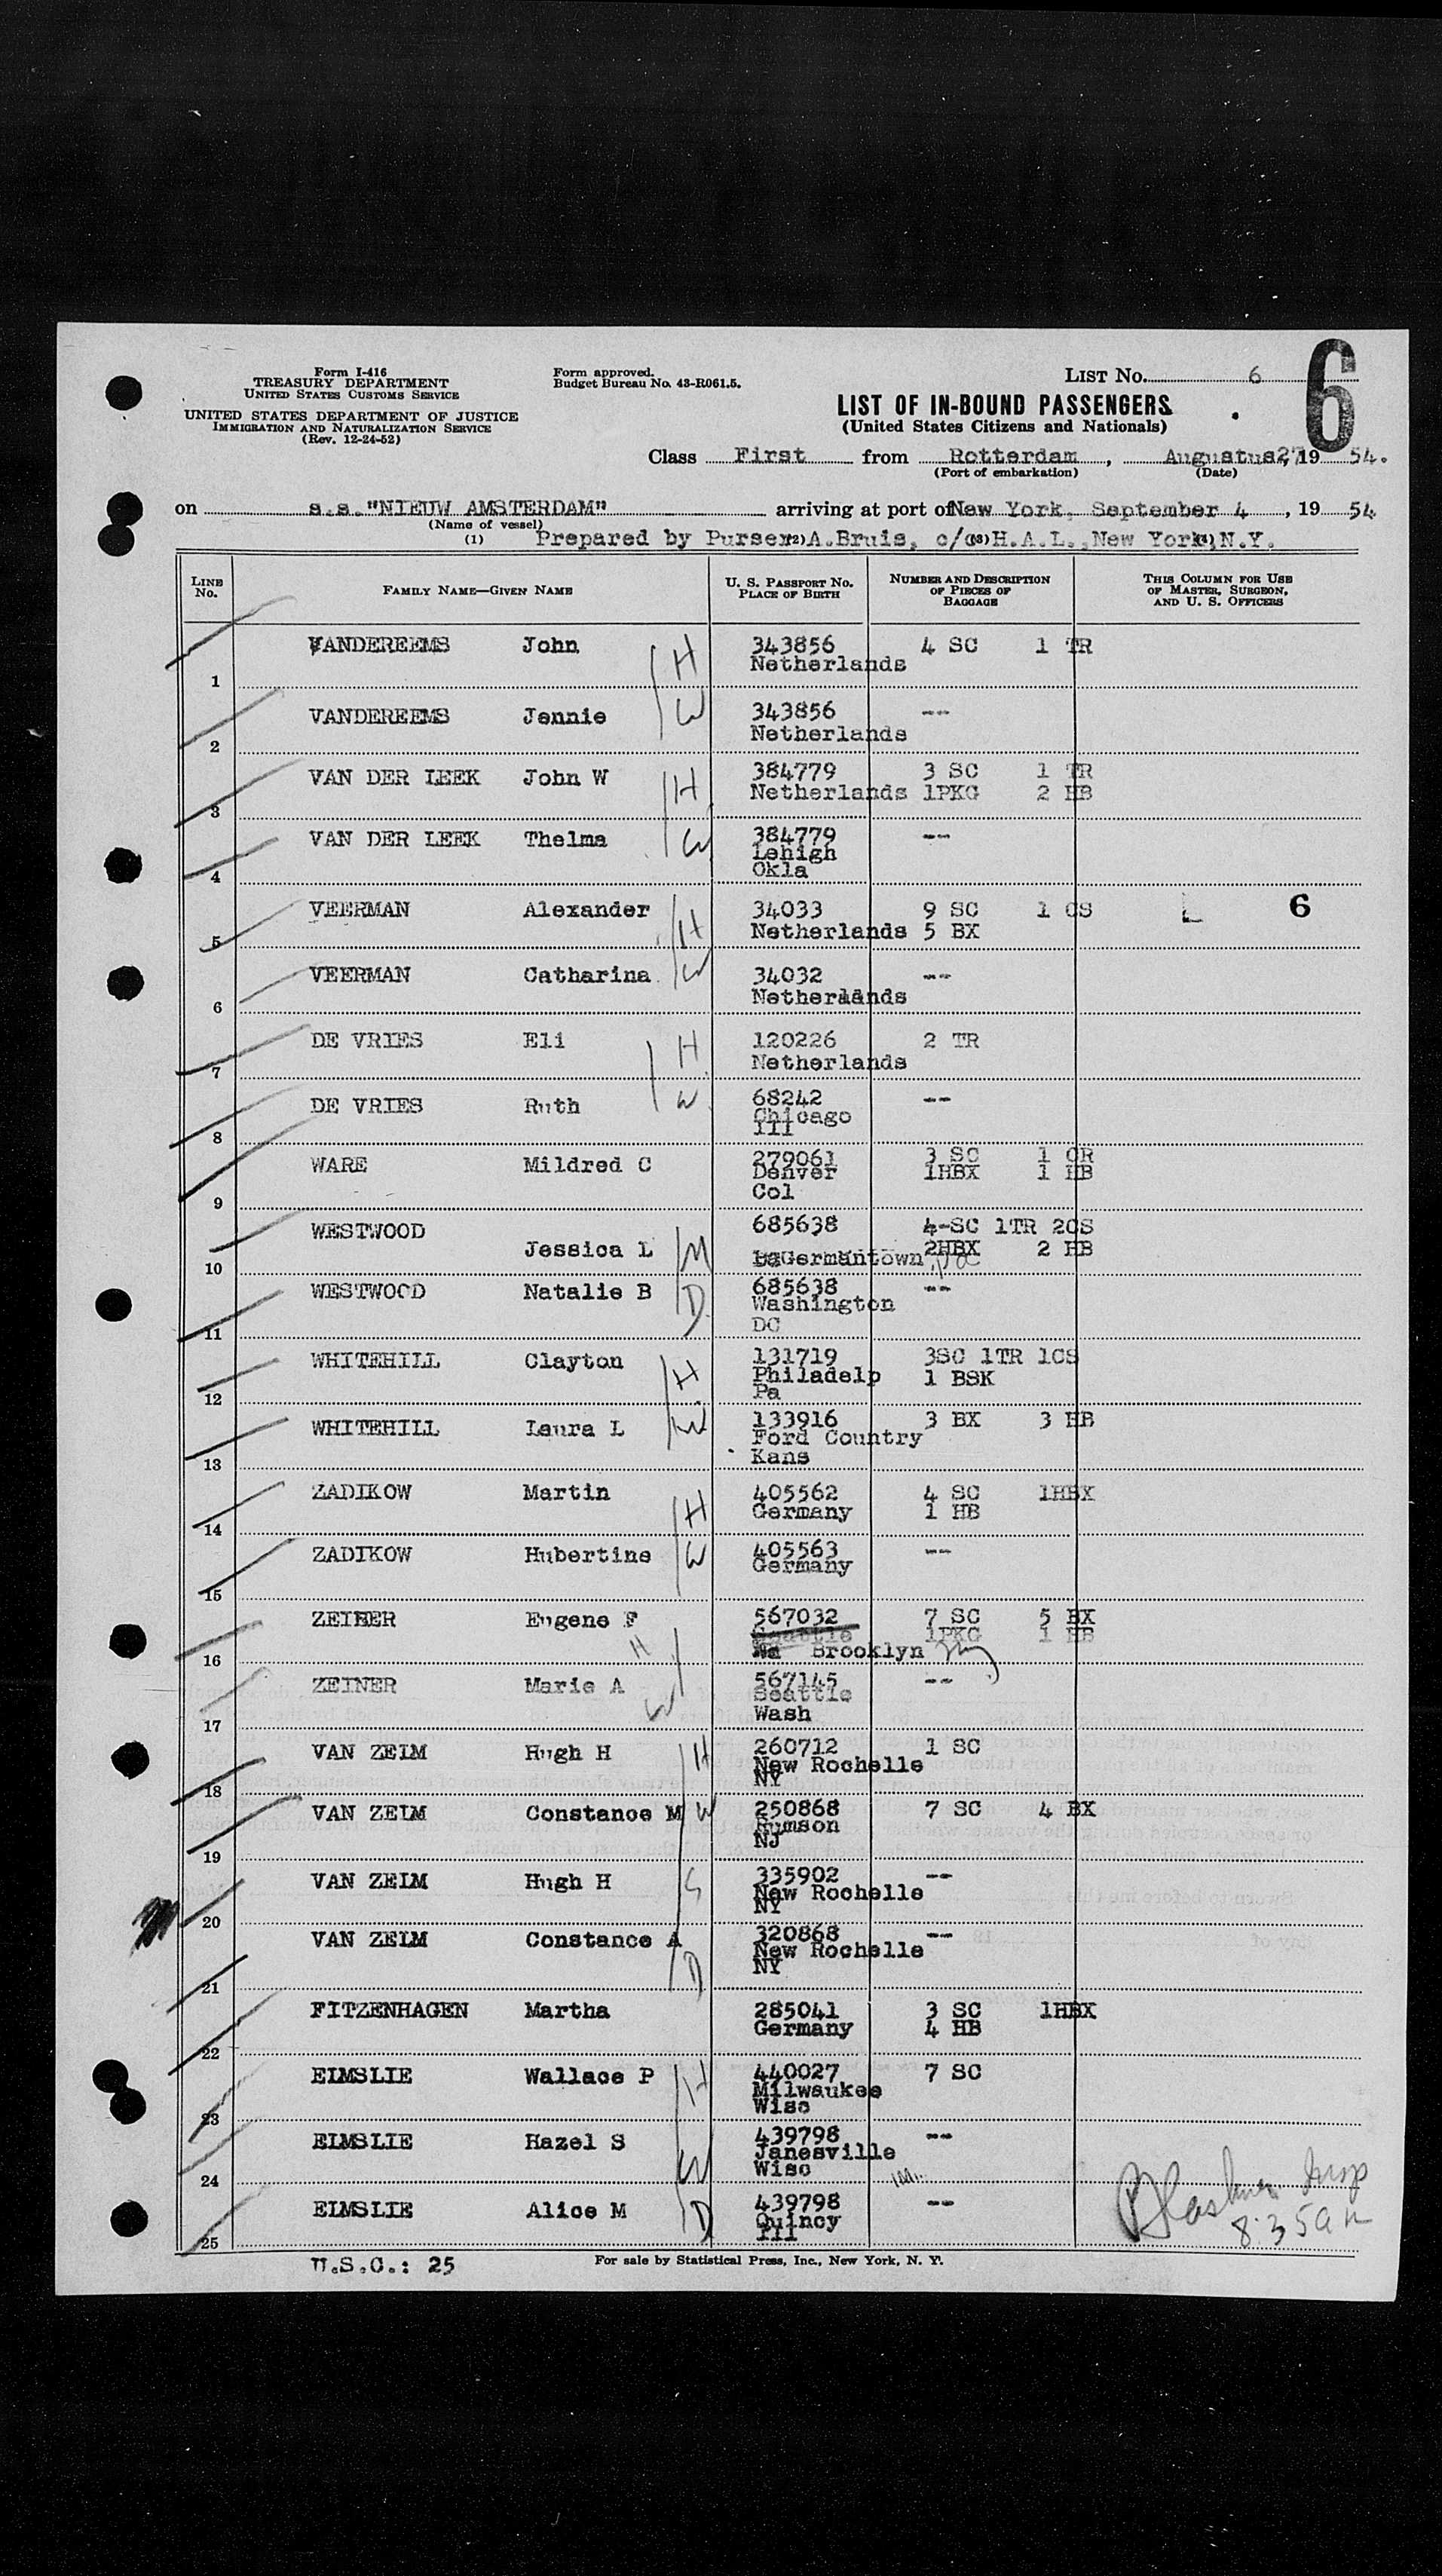 Form I-416
TREASURY DEPARTMENT
UNITED STATES CUSTOMS SERVICE
UNITED STATES DEPARTMENT OF JUSTICE
IMMIGRATION AND NATURALIZATION SERVICE
(Rev. 12-24-52)
Form approved.
Budget Bureau No. 43-R061.5.
LIST NO. 6
6
LIST OF IN-BOUND PASSENGERS
(United States Citizens and Nationals)
Class First from Rotterdam, Augustus27, 19 54.
(Port of embarkation) (Date)
on s.s."NIEUW AMSTERDAM" arriving at port of New York, September 4, 19 54
(Name of vessel)
(1) Prepared by Purser(2)A.Bruis, c/o(3)H.A.L.,New York,N.Y.
LINE NO. FAMILY NAME—GIVEN NAME U. S. PASSPORT NO. PLACE OF BIRTH NUMBER AND DESCRIPTION OF PIECES OF BAGGAGE THIS COLUMN FOR USE OF MASTER, SURGEON, AND U. S. OFFICERS
VANDEREEMS John H 343856 4 SC 1 TR
Netherlands
1
VANDEREEMS Jennie W 343856 --
Netherlands
2
VAN DER LEEK John W H 384779 3 SC 1 TR
Netherlands 1PKG 2 HB
3
VAN DER LEEK Thelma W 384779 --
Lehigh
Okla
4
VEERMAN Alexander H 34033 9 SC 1 CS L 6
Netherlands 5 BX
5
VEERMAN Catharina W 34032 --
Netherlands
6
DE VRIES Eli H 120226 2 TR
Netherlands
7
DE VRIES Ruth W 68242 --
Chicago
Ill
8
WARE Mildred C 279061 3 SC 1 CR
Denver 1HBX 1 HB
Col
9
WESTWOOD 685638 4-SC 1TR 2CS
Jessica L M Germantown Pa 2HBX 2 HB
10
WESTWOOD Natalie B D 685638 --
Washington
DC
11
WHITEHILL Clayton H 131719 3SC 1TR 1CS
Philadelp 1 BSK
Pa
12
WHITEHILL Laura L W 133916 3 BX 3 HB
Ford Country
Kans
13
ZADIKOW Martin H 405562 4 SC 1HBX
Germany 1 HB
14
ZADIKOW Hubertine W 405563 --
Germany
15
ZEINER Eugene F H 567032 7 SC 5 BX
Seattle 1PKG 1 HB
Wa Brooklyn NY
16
ZEINER Marie A W 567145 --
Seattle
Wash
17
VAN ZELM Hugh H H 260712 1 SC
New Rochelle
NY
18
VAN ZELM Constance M W 250868 7 SC 4 BX
Rumson
NJ
19
VAN ZELM Hugh H S 335902 --
New Rochelle
NY
20
VAN ZELM Constance A D 320868 --
New Rochelle
NY
21
FITZENHAGEN Martha 285041 3 SC 1HBX
Germany 4 HB
22
ELMSLIE Wallace P H 440027 7 SC
Milwaukee
Wisc
23
ELMSLIE Hazel S W 439798 --
Janesville
Wisc
24
ELMSLIE Alice M D 439798 --
Quincy
Ill
25
Insp
8:35 am
U.S.C.: 25 For sale by Statistical Press, Inc., New York, N. Y.